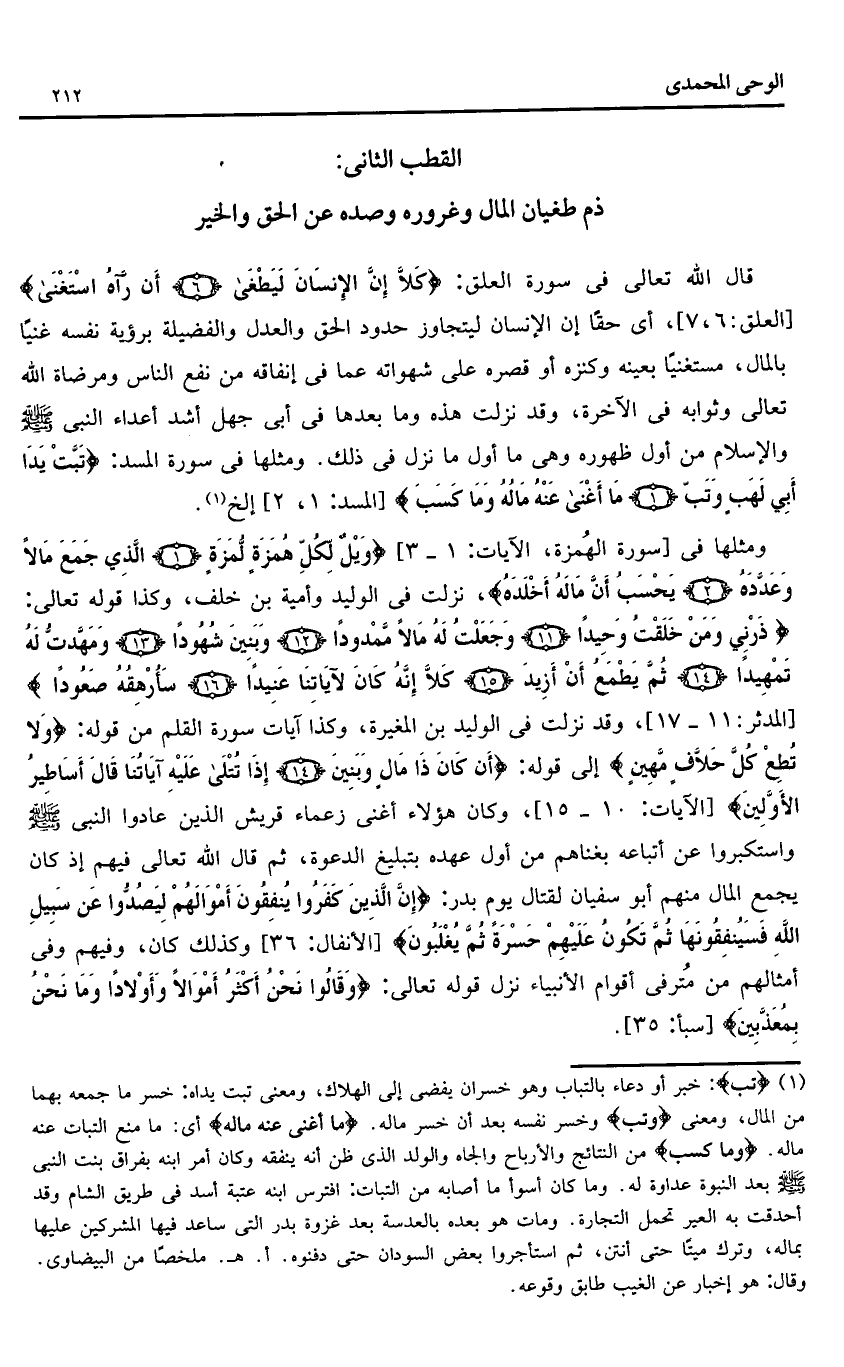 الوحى المحمدى
٢١٢
القطب الثانى:
ذم طغيان المال وغروره وصده عن الحق والخير
قال الله تعالى فى سورة العلق: ﴿كَلاَّ إِنَّ الإِنسَانَ لَيَطْغَىٰ ﴿٦﴾ أَن رَّآهُ اسْتَغْنَىٰ﴾
[العلق:٧،٦]، أى حقًا إن الإنسان ليتجاوز حدود الحق والعدل والفضيلة برؤية نفسه غنيًا
بالمال، مستغنيًا بعينه وكنزه أو قصره على شهواته عما فى إنفاقه من نفع الناس ومرضاة الله
تعالى وثوابه فى الآخرة، وقد نزلت هذه وما بعدها فى أبى جهل أشد أعداء النبى ﷺ
والإسلام من أول ظهوره وهى ما أول ما نزل فى ذلك. ومثلها فى سورة المسد: ﴿تَبَّتْ يَدَا
أَبِي لَهَبٍ وَتَبَّ ﴿١﴾ مَا أَغْنَىٰ عَنْهُ مَالُهُ وَمَا كَسَبَ ﴾ [المسد: ١ ، ٢] إلخ(١).
ومثلها فى [سورة الهُمزة، الآيات: ١ ـ ٣] ﴿وَيْلٌ لِّكُلِّ هُمَزَةٍ لُّمَزَةٍ ﴿١﴾ الَّذِي جَمَعَ مَالاً
وَعَدَّدَهُ ﴿٢﴾ يَحْسَبُ أَنَّ مَالَهُ أَخْلَدَهُ﴾، نزلت فى الوليد وأمية بن خلف، وكذا قوله تعالى:
﴿ ذَرْنِي وَمَنْ خَلَقْتُ وَحِيدًا ﴿١١﴾ وَجَعَلْتُ لَهُ مَالاً مَّمْدُودًا ﴿١٢﴾ وَبَنِينَ شُهُودًا ﴿١٣﴾ وَمَهَّدتُّ لَهُ
تَمْهِيدًا ﴿١٤﴾ ثُمَّ يَطْمَعُ أَنْ أَزِيدَ ﴿١٥﴾ كَلاَّ إِنَّهُ كَانَ لآيَاتِنَا عَنِيدًا ﴿١٦﴾ سَأُرْهِقُهُ صَعُودًا ﴾
[المدثر:١١ ـ ١٧]، وقد نزلت فى الوليد بن المغيرة، وكذا آيات سورة القلم من قوله: ﴿وَلا
تُطِعْ كُلَّ حَلاَّفٍ مَّهِينٍ ﴾ إلى قوله: ﴿أَن كَانَ ذَا مَالٍ وَبَنِينَ ﴿١٤﴾ إِذَا تُتْلَىٰ عَلَيْهِ آيَاتُنَا قَالَ أَسَاطِيرُ
الأَوَّلِينَ﴾ [الآيات: ١٠ ـ ١٥]، وكان هؤلاء أغنى زعماء قريش الذين عادوا النبى ﷺ
واستكبروا عن أتباعه بغناهم من أول عهده بتبليغ الدعوة، ثم قال الله تعالى فيهم إذ كان
يجمع المال منهم أبو سفيان لقتال يوم بدر: ﴿إِنَّ الَّذِينَ كَفَرُوا يُنفِقُونَ أَمْوَالَهُمْ لِيَصُدُّوا عَن سَبِيلِ
اللَّهِ فَسَيُنفِقُونَهَا ثُمَّ تَكُونُ عَلَيْهِمْ حَسْرَةً ثُمَّ يُغْلَبُونَ﴾ [الأنفال: ٣٦] وكذلك كان، وفيهم وفى
أمثالهم من مُترفى أقوام الأنبياء نزل قوله تعالى: ﴿وَقَالُوا نَحْنُ أَكْثَرُ أَمْوَالاً وَأَوْلادًا وَمَا نَحْنُ
بِمُعَذَّبِينَ﴾ [سبأ: ٣٥].
(١) ﴿تب﴾: خبر أو دعاء بالتباب وهو خسران يفضى إلى الهلاك، ومعنى تبت يداه: خسر ما جمعه بهما
من المال، ومعنى ﴿وتب﴾ وخسر نفسه بعد أن خسر ماله. ﴿ما أغنى عنه ماله﴾ أى: ما منع التبات عنه
ماله. ﴿وما كسب﴾ من النتائج والأرباح والجاه والولد الذى ظن أنه ينفقه وكان أمر ابنه بفراق بنت النبى
ﷺ بعد النبوة عداوة له. وما كان أسوأ ما أصابه من التبات: افترس ابنه عتبة أسد فى طريق الشام وقد
أحدقت به العير تحمل التجارة. ومات هو بعده بالعدسة بعد غزوة بدر التى ساعد فيها المشركين عليها
بماله، وترك ميتًا حتى أنتن، ثم استأجروا بعض السودان حتى دفنوه. أ. هـ. ملخصًا من البيضاوى.
وقال: هو إخبار عن الغيب طابق وقوعه.